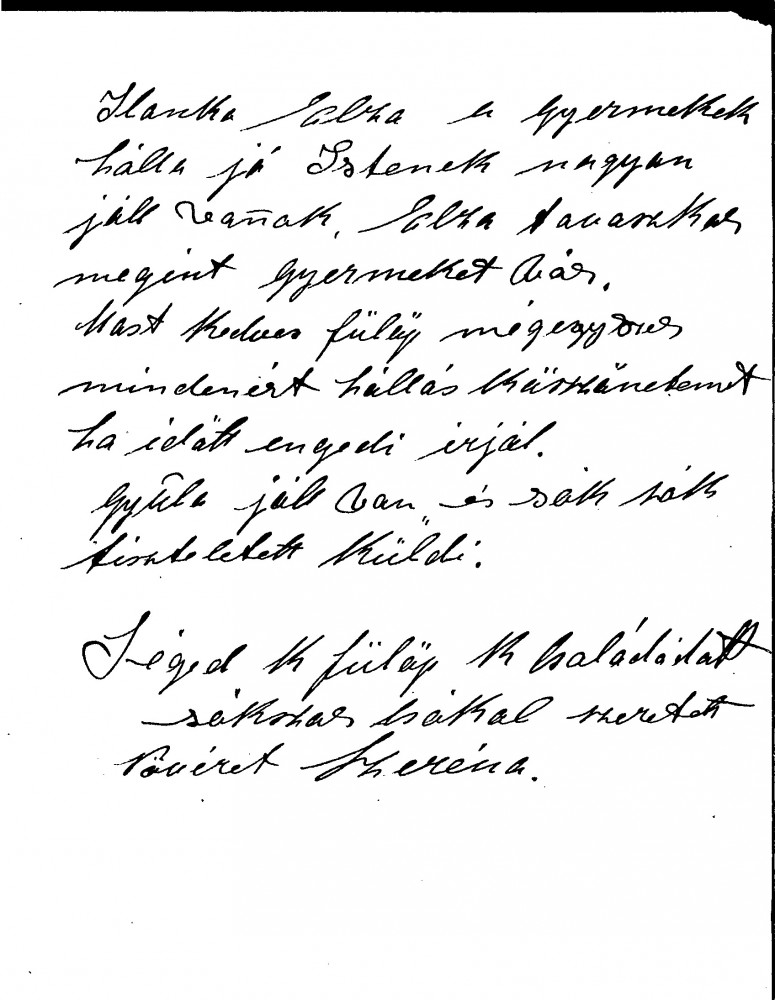 Ilanka Elza a gyermekek
hálla jó Istenek nagyan
jóll vañak, Elza tavaszkar
megint gyermeket vár.
Mast kedves fülöp mégegyszer
mindenért hállás köszönetemet
ha időtt engedi irjál.
Gyula jóll van és sók sók
tiszteletett küldi.
Téged K fülöp K családadatt
sókszar csókal szeretett
Növéret Szeréna.